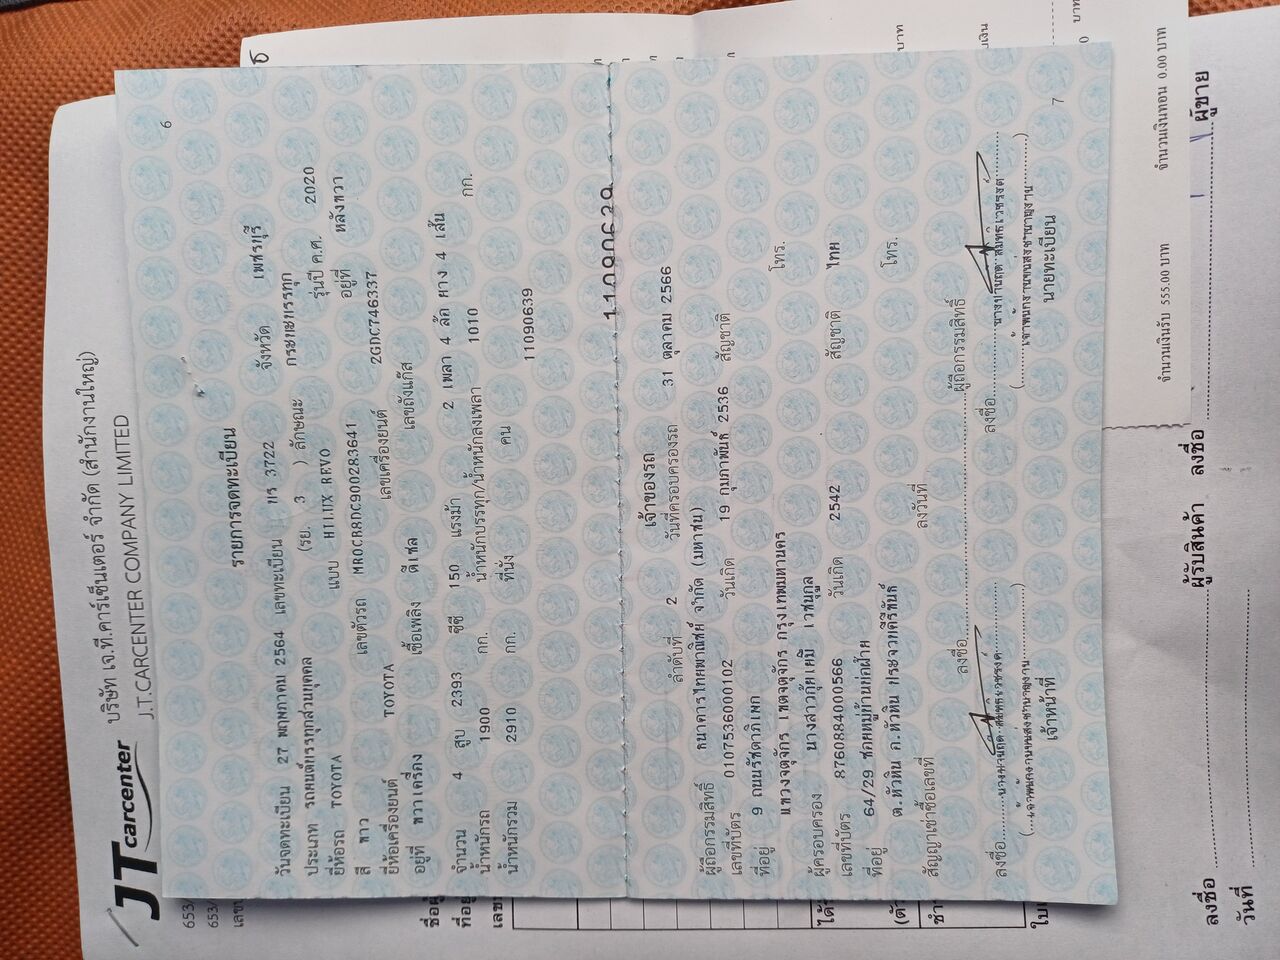 JT carcenter
บริษัท เจ.ที.คาร์เซ็นเตอร์ จำกัด (สำนักงานใหญ่)
J.T.CARCENTER COMPANY LIMITED
653/
653/
6
รายการจดทะเบียน
วันจดทะเบียน 27 พฤษภาคม 2564 เลขทะเบียน 3722 จังหวัด เพชรบุรี
ประเภท รถยนต์บรรทุกส่วนบุคคล (รย. 3 ) ลักษณะ กระบะบรรทุก
ยี่ห้อรถ TOYOTA แบบ HILUX REVO รุ่นปี ค.ศ. 2020
สี ขาว เลขตัวรถ MR0CB8DC900283641 อยู่ที่ หลังขวา
ยี่ห้อเครื่องยนต์ TOYOTA เลขเครื่องยนต์ 2GDC746337
อยู่ที่ ขวาเครื่อง เชื้อเพลิง ดีเซล เลขถังแก๊ส
จำนวน 4 สูบ 2393 ซีซี 150 แรงม้า 2 เพลา 4 ล้อ ยาง 4 เส้น
น้ำหนักรถ 1900 กก. น้ำหนักบรรทุก/น้ำหนักลงเพลา 1010 กก.
น้ำหนักรวม 2910 กก. ที่นั่ง คน
11090639
เจ้าของรถ
ลำดับที่ 2 วันที่ครอบครองรถ 31 ตุลาคม 2566
ผู้ถือกรรมสิทธิ์ ธนาคารไทยพาณิชย์ จำกัด (มหาชน)
เลขที่บัตร 0107536000102 วันเกิด 19 กุมภาพันธ์ 2536 สัญชาติ
ที่อยู่ 9 ถนนรัชดาภิเษก
แขวงจตุจักร เขตจตุจักร กรุงเทพมหานคร โทร.
ผู้ครอบครอง
เลขที่บัตร 8760884000566 วันเกิด 2542 สัญชาติ ไทย
ที่อยู่ 64/29 ซอยหมู่บ้านบ่อฝ้าย
ต.หัวหิน อ.หัวหิน ประจวบคีรีขันธ์ โทร.
สัญญาเช่าซื้อเลขที่ ลงวันที่
ลงชื่อ ผู้ถือกรรมสิทธิ์
ลงชื่อ ลงชื่อ
(เจ้าพนักงานขนส่งชำนาญงาน) (เจ้าพนักงานขนส่งชำนาญงาน)
เจ้าหน้าที่ นายทะเบียน
7
จำนวนเงินรับ 555.00 บาท จำนวนเงินทอน 0.00 บาท
ลงชื่อ ผู้รับสินค้า ลงชื่อ ผู้ขาย
วันที่